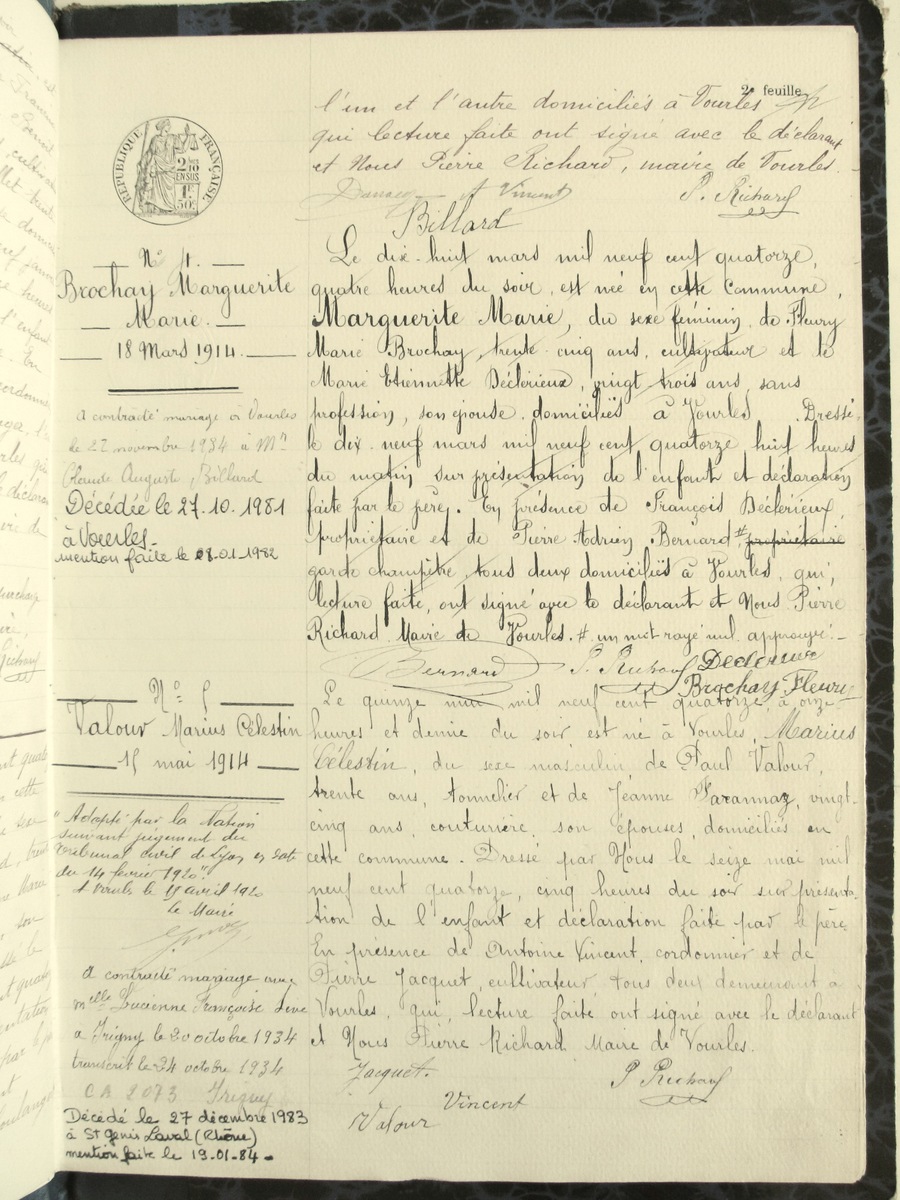 2e feuille
l'un et l'autre domiciliés à Vourles
qui lecture faite ont signé avec le déclarant
et Nous Pierre Richard, maire de Vourles.
A Vincent P. Richard
Billard
RÉPUBLIQUE FRANÇAISE
2/10 EN SUS
1F 50c
N° 4.
Brochay Marguerite
Marie.
18 Mars 1914.
a contracté mariage à Vourles
le 22 novembre 1934 à Mr
Claude Auguste Billard
Décédée le 27.10.1981
à Vourles-
mention faite le 08.01.1982
Le dix-huit mars mil neuf cent quatorze,
quatre heures du soir, est née en cette Commune,
Marguerite Marie, du sexe féminin, de Fleury
Marie Brochay, trente-cinq ans, cultivateur et de
Marie Etiennette Déclérieux, vingt-trois ans, sans
profession, son épouse, domiciliés à Vourles. Dressé
le dix-neuf mars mil neuf cent quatorze huit heures
du matin, sur présentation de l'enfant et déclaration
faite par le père. En présence de François Déclérieux,
propriétaire et de Pierre Adrien Bernard # propriétaire
garde champêtre, tous deux domiciliés à Vourles, qui,
lecture faite, ont signé avec le déclarant et Nous Pierre
Richard Maire de Vourles. # un mot rayé nul approuvé.-
Bernard P. Richard Declerieux
Brochay Fleury
N° 5
Valour Marius Célestin
15 mai 1914
"Adopté par la Nation
suivant jugement du
Tribunal civil de Lyon en date
du 14 février 1920".
A Vourles le 15 avril 1920
Le Maire
a contracté mariage avec
Melle Lucienne Françoise
à Irigny le 20 octobre 1934
transcrit le 24 octobre 1934
CA 2073 Irigny
Décédé le 27 décembre 1983
à St Genis Laval (Rhône)
mention faite le 19.01-84-
Le quinze mai mil neuf cent quatorze, à onze
heures et demie du soir est né à Vourles, Marius
Célestin, du sexe masculin, de Paul Valour,
trente ans, tonnelier et de Jeanne Farannaz, vingt-
cinq ans, couturière, son épouse, domiciliés en
cette commune. Dressé par Nous le seize mai mil
neuf cent quatorze, cinq heures du soir sur présenta-
tion de l'enfant et déclaration faite par le père.
En présence de Antoine Vincent, cordonnier et de
Pierre Jacquet, cultivateur, tous deux demeurant à
Vourles, qui, lecture faite, ont signé avec le déclarant
et Nous Pierre Richard Maire de Vourles.
Jacquet. P Richard
Vincent
Valour